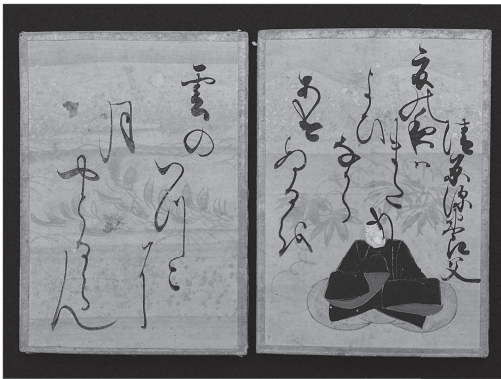 清原深養父
夏の夜は
また
よひ
なから
あけ
ぬるを
雲の
いつこに
月
やとるらん